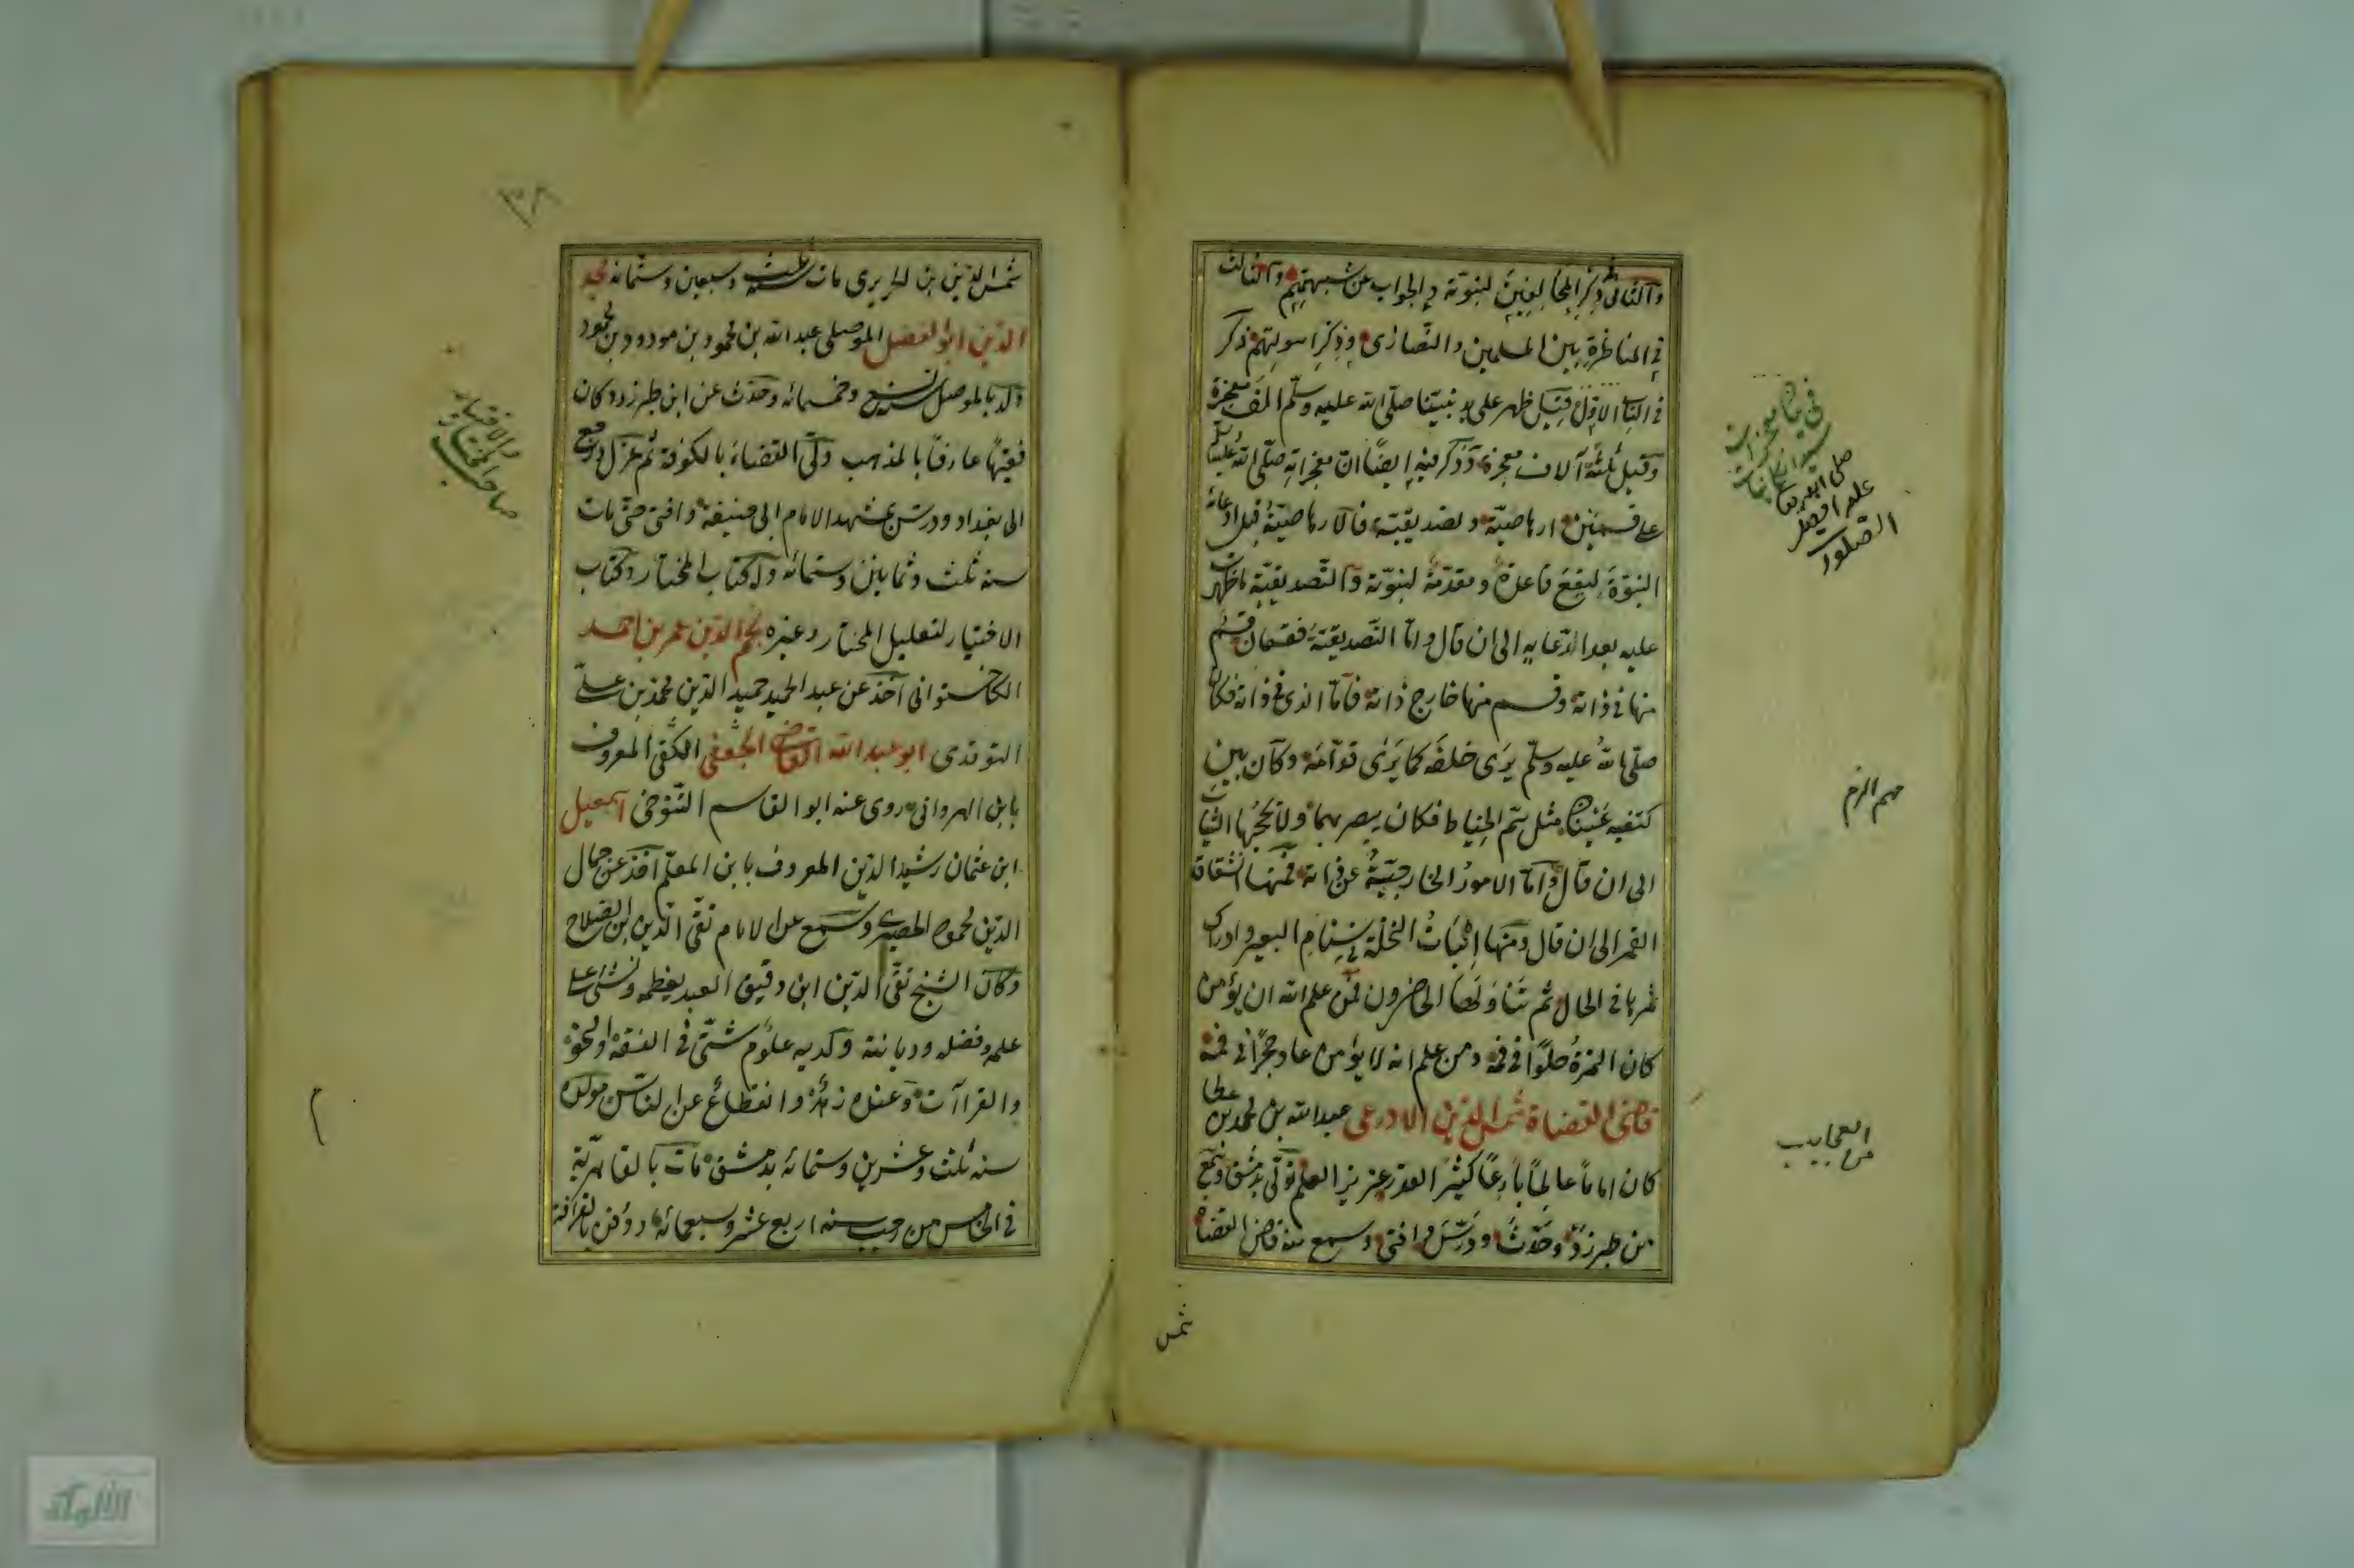 والثانى فى ذكر المخالفين لنبوته والجواب عن شبهتهم والثالث
فى المناظرة بين المسلمين والنصارى وذكر اسولتهم ذكر
فى الباب الاول قيل ظهر على يد نبينا صلى الله عليه وسلم الف معجزة
وقيل ثلثة آلاف معجزة وذكر فيه ايضا ان معجزاته صلى الله عليه وسلم
على قسمين ارهاصية وتصديقية فالارهاصية قبل ادعائه
النبوة ليقع قاعدة ومقدمة لنبوته والتصديقية ما ظهرت
عليه بعد ادعايه الى ان قال واما التصديقية فقسمان قسم
منها فى ذاته وقسم منها خارج ذاته فاما الذى فى ذاته فكان
صلى الله عليه وسلم يرى خلفه كما يرى قدامه وكان بين
كتفيه عينان مثل سم الخياط فكان يبصر بهما ولا تحجبها الثياب
الى ان قال واما الامور الخارجية عن ذاته فمنها انشقاق
القمر الى ان قال ومنها اثبات النخلة فى سنام البعير وادراك
ثمرها فى الحال ثم تناولها الحاضرون فمن علم الله ان يؤمن
كان التمرة حلوا فى فمه ومن علم انه لا يؤمن عاد حجرا فى فمه
قاضى القضاة شمس الدين الادرعى عبد الله بن محمد بن عطا
كان اماما عالما بارعا كثير القدر عزيز العلم تولى بدمشق وسمع
من طبرزد وحدث ودرس وافتى وسمع منه قاضى القضاة
شمس
فى بيان معجزات
سيد الكائنات
صلى الله تعالى
عليه افضل
الصلوات
مهم الزم
من العجايب
٣٨
شمس الدين بن الحريرى مات سنة ثلث وسبعين وستمائه مجد
الدين ابو الفضل الموصلى عبد الله بن محمود بن مودود بن محمود
ولد بالموصل سنة تسع وخمسمائه وحدث عن ابن طبرزد وكان
فقيها عارفا بالمذهب ولى القضاء بالكوفة ثم عزل ورجع
الى بغداد ودرس بمشهد الامام ابى حنيفة وافتى حتى مات
سنه ثلث وثمانين وستمائه وله كتاب المختار وكتاب
الاختيار لتعليل المختار وغيره نجم الدين عمر بن احمد
الكاخشتوانى آخذ عن عبد الحميد حميد الدين محمد بن على
النوقدى ابو عبد الله القاضى الجعفى الكوفى المعروف
بابن الهروانى روى عنه ابو القاسم التنوخى اسمعيل
ابن عثمان رشيد الدين المعروف بابن المعلم اخذ عن جمال
الدين محمود الحصيرى وسمع عن الامام تقى الدين ابن الصلاح
وكان الشيخ تقى الدين ابن دقيق العيد يعظمه ويثنى على
علمه وفضله وديانته وكديه علوم شتى فى الفقه والنحو
والقراآت وعنده زهد وانقطاع عن الناس مولده
سنه ثلث وعشرين وستمائه بدمشق مات بالقاهرية
فى الخامس من رجب سنه اربع عشر وسبعمائه ودفن بالقرافة
والاختيار
صاحب المختار
م
الألوكة